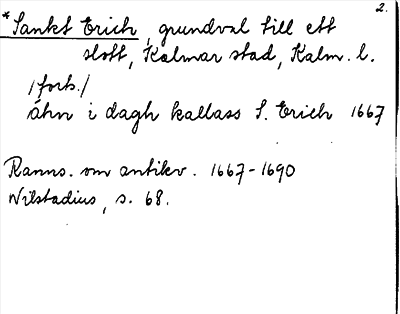 2.
*Sankt Erich, grundval till ett
slott, Kalmar stad, Kalm. l.
/forts./
åhn i dagh kallass S. Erich 1667
Ranns. om antikv. 1667-1690
Wilstadius, s. 68.